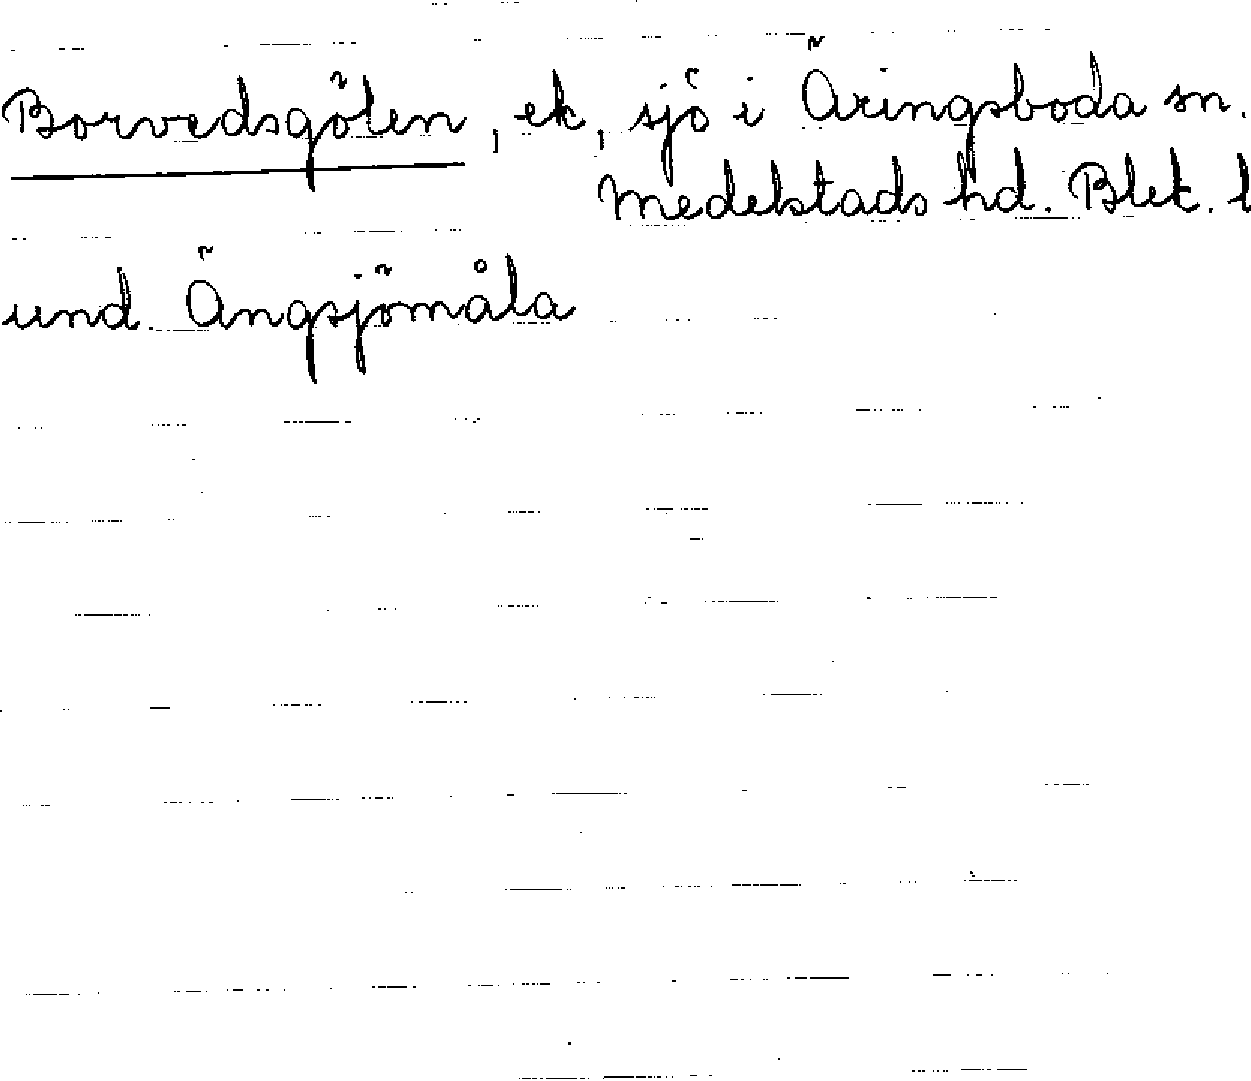 Borvedsgölen, ek, sjö i Äringsboda sn.
Medelstads hd. Blek. l
und. Ängsjömåla